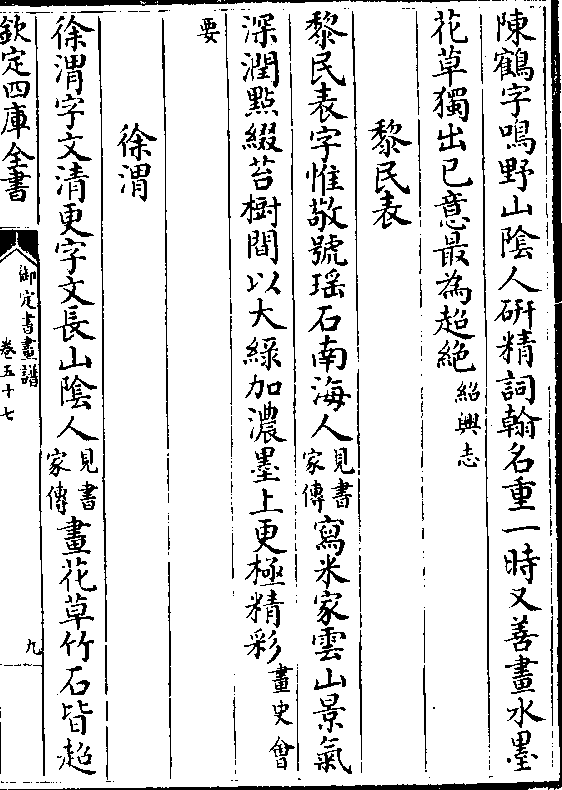 陳鶴字鳴野山陰人硏精詞翰名重一時又善畫水墨
花草獨出已意最為超絶紹興志
黎民表
黎民表字惟敬號瑤石南海人見書家傳寫米家雲山景氣
深潤點綴苔樹間以大綠加濃墨上更極精彩畫史會
要
徐渭
徐渭字文清更字文長山陰人見書家傳畫花草竹石皆超
欽定四庫全書
御定書畫譜
卷五十七
九